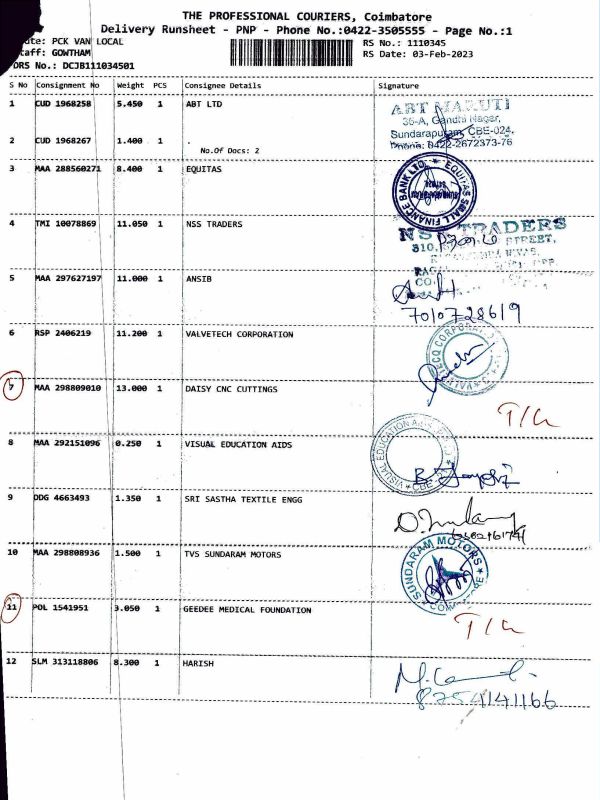 THE PROFESSIONAL COURIERS, Coimbatore
Delivery Runsheet - PNP - Phone No.:0422-3505555 - Page No.:1
PCK VAN LOCAL RS No.: 1110345
GOWTHAM RS Date: 03-Feb-2023
No.: DCJB111034501
S No Consignment No Weight PCS Consignee Details Signature
1 CUD 1968258 5.450 1 ABT LTD
ABT MARUTI
36-A, Gandhi Nagar,
Sundarapuram, CBE-024,
Phone: 0422-2672373-76
2 CUD 1968267 1.400 1 .
No.Of Docs: 2
3 MAA 288560271 8.400 1 EQUITAS
EQUITAS SMALL FINANCE BANK LTD.
4 TMI 10078869 11.050 1 NSS TRADERS
TRADERS
310, STREET,
5 MAA 297627197 11.000 1 ANSIB
7010728619
6 RSP 2406219 11.200 1 VALVETECH CORPORATION
MAA 298809010 13.000 1 DAISY CNC CUTTINGS
8 MAA 292151096 0.250 1 VISUAL EDUCATION AIDS
VISUAL EDUCATION AIDS
CBE
9 DDG 4663493 1.350 1 SRI SASTHA TEXTILE ENGG
10 MAA 298808936 1.500 1 TVS SUNDARAM MOTORS
SUNDARAM MOTORS
11 POL 1541951 3.050 1 GEEDEE MEDICAL FOUNDATION
12 SLM 313118806 8.300 1 HARISH
8754141166